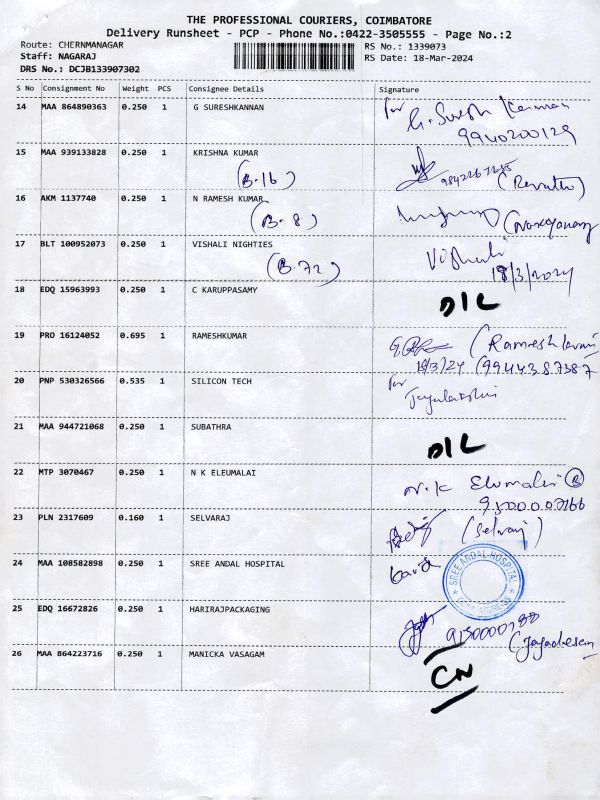 THE PROFESSIONAL COURIERS, COIMBATORE
Delivery Runsheet - PCP - Phone No.:0422-3505555 - Page No.:2
Route: CHERNMANAGAR
Staff: NAGARAJ
DRS No.: DCJB133907302
RS No.: 1339073
RS Date: 18-Mar-2024
S No Consignment No Weight PCS Consignee Details Signature
14 MAA 864890363 0.250 1 G SURESHKANNAN for G. Suresh Kannan
9940200129
15 MAA 939133828 0.250 1 KRISHNA KUMAR
(B-16) (Revathi)
16 AKM 1137740 0.250 1 N RAMESH KUMAR
(B-8) (Narayanan)
17 BLT 100952073 0.250 1 VISHALI NIGHTIES Vishali
(B-72) 18/3/2024
18 EDQ 15963993 0.250 1 C KARUPPASAMY
D/L
19 PRO 16124052 0.695 1 RAMESHKUMAR
18/3/24 (9944387387
20 PNP 530326566 0.535 1 SILICON TECH for
Jayalakshmi
21 MAA 944721068 0.250 1 SUBATHRA
D/L
22 MTP 3070467 0.250 1 N K ELEUMALAI N.K Elumalai
23 PLN 2317609 0.160 1 SELVARAJ (Selvaraj)
24 MAA 108582898 0.250 1 SREE ANDAL HOSPITAL
SREE ANDAL HOSPITAL
25 EDQ 16672826 0.250 1 HARIRAJPACKAGING
26 MAA 864223716 0.250 1 MANICKA VASAGAM
CN